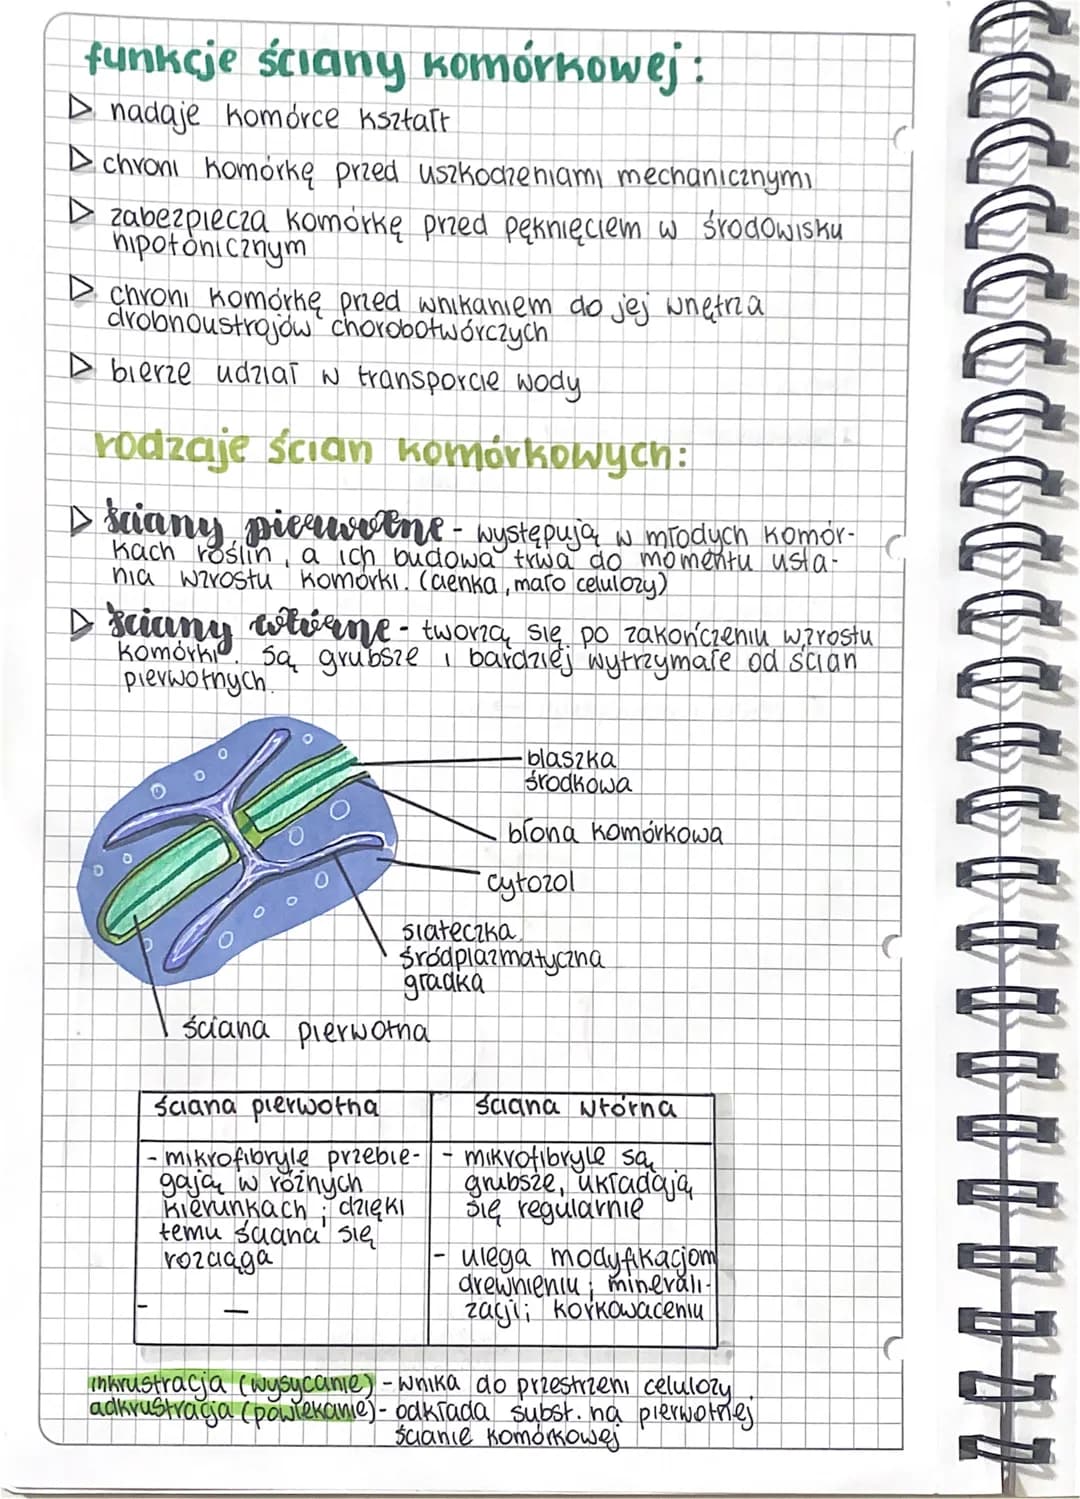 funkcje ściany komórkowej:
▷ nadaje komórce kształt
▷ chroni komórkę przed uszkodzeniami mechanicznymi
▷ zabezpiecza komórkę przed pęknięciem w środowisku
hipotonicznym
▷ chroni komórkę przed wnikaniem do jej wnętrza
drobnoustrojów chorobotwórczych
▷ bierze udział w transporcie wody
rodzaje ścian komórkowych:
▷ ściany pierwotne - występują w młodych komór-
kach roślin, a ich budowa trwa do momentu usta-
nia wzrostu komórki. (cienka, mało celulozy)
▷ ściany wtórne - tworzą się po zakończeniu wzrostu
komórki. Są grubsze i bardziej wytrzymałe od ścian
pierwotnych.
blaszka
środkowa
błona komórkowa
cytozol
siateczka
śródplazmatyczna
gładka
ściana pierwotna
ściana pierwotna
ściana wtórna
- mikrofibryle przebie-
gają w różnych
kierunkach; dzięki
temu ściana się
rozciąga
- —
- mikrofibryle są
grubsze, układają
się regularnie
- ulega modyfikacjom
drewnieniu; minerali-
zacji; korkowaceniu
inkrustracja (wysycanie) - wnika do przestrzeni celulozy
adkrustracja (powlekanie) - odkłada subst. na pierwotnej
ścianie komórkowej